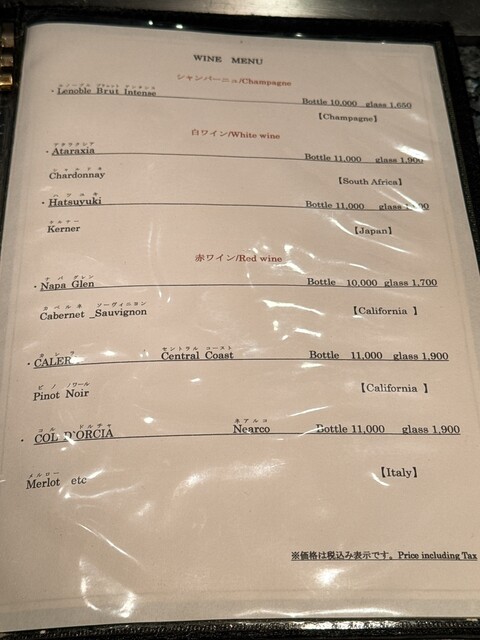 WINE MENU
シャンパーニュ/Champagne
・Lenoble Brut Intense Bottle 10,000 glass 1,650
【Champagne】
白ワイン/White wine
アタラクシア
・Ataraxia Bottle 11,000 glass 1,900
シャルドネ
Chardonnay 【South Africa】
ハツユキ
・Hatsuyuki Bottle 11,000 glass
ケルナー
Kerner 【Japan】
赤ワイン/Red wine
ナパ グレン
・Napa Glen Bottle 10,000 glass 1,700
カベルネ ソーヴィニヨン
Cabernet _Sauvignon 【California 】
カレラ セントラル コースト
・CALER Central Coast Bottle 11,000 glass 1,900
ピノ ノワール
Pinot Noir 【California 】
コル ドルチャ ネアルコ
・COL D'ORCIA Nearco Bottle 11,000 glass 1,900
メルロー
Merlot etc 【Italy】
※価格は税込み表示です。Price including Tax